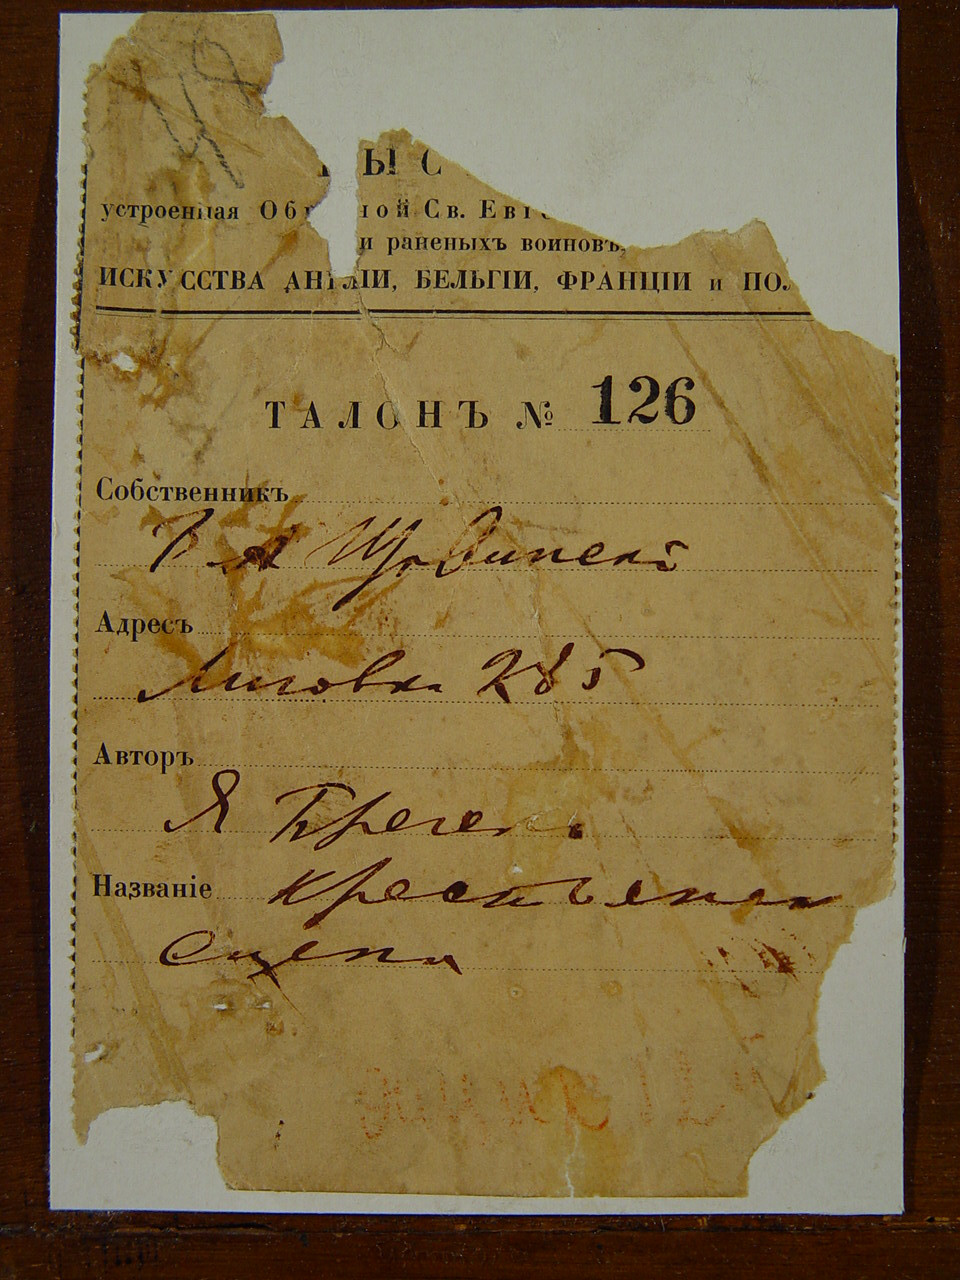 ВЫС
устроенная Об ной Св. Евге
и раненыхъ воиновъ,
ИСКУССТВА АНГЛІИ, БЕЛЬГІИ, ФРАНЦІИ и ПО
ТАЛОНЪ № 126
Собственникъ
Щавинскі
Адресъ
Лиговка
Авторъ
Я
Названіе крестьянск
сцена